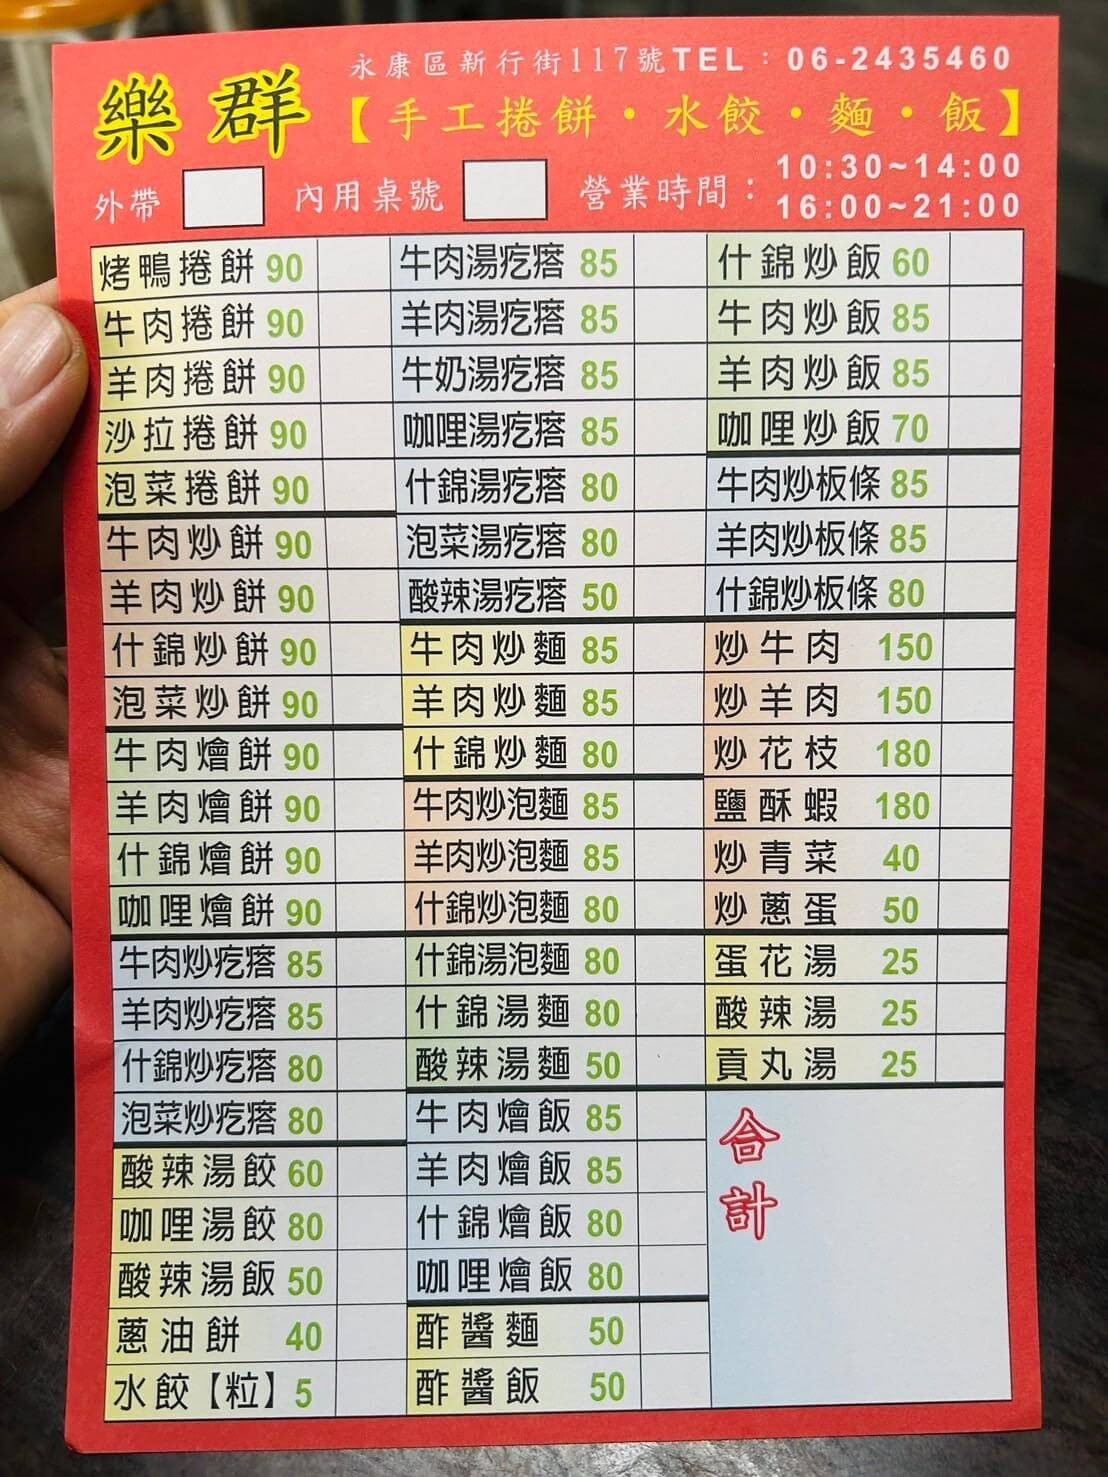 永康區新行街117號TEL：06-2435460
樂群
【手工捲餅・水餃・麵・飯】
外帶 內用桌號 營業時間：10:30~14:00
16:00~21:00
烤鴨捲餅 90
牛肉捲餅 90
羊肉捲餅 90
沙拉捲餅 90
泡菜捲餅 90
牛肉炒餅 90
羊肉炒餅 90
什錦炒餅 90
泡菜炒餅 90
牛肉燴餅 90
羊肉燴餅 90
什錦燴餅 90
咖哩燴餅 90
牛肉炒疙瘩 85
羊肉炒疙瘩 85
什錦炒疙瘩 80
泡菜炒疙瘩 80
酸辣湯餃 60
咖哩湯餃 80
酸辣湯飯 50
蔥油餅 40
水餃【粒】5
牛肉湯疙瘩 85
羊肉湯疙瘩 85
牛奶湯疙瘩 85
咖哩湯疙瘩 85
什錦湯疙瘩 80
泡菜湯疙瘩 80
酸辣湯疙瘩 50
牛肉炒麵 85
羊肉炒麵 85
什錦炒麵 80
牛肉炒泡麵 85
羊肉炒泡麵 85
什錦炒泡麵 80
什錦湯泡麵 80
什錦湯麵 80
酸辣湯麵 50
牛肉燴飯 85
羊肉燴飯 85
什錦燴飯 80
咖哩燴飯 80
酢醬麵 50
酢醬飯 50
什錦炒飯 60
牛肉炒飯 85
羊肉炒飯 85
咖哩炒飯 70
牛肉炒板條 85
羊肉炒板條 85
什錦炒板條 80
炒牛肉 150
炒羊肉 150
炒花枝 180
鹽酥蝦 180
炒青菜 40
炒蔥蛋 50
蛋花湯 25
酸辣湯 25
貢丸湯 25
合計